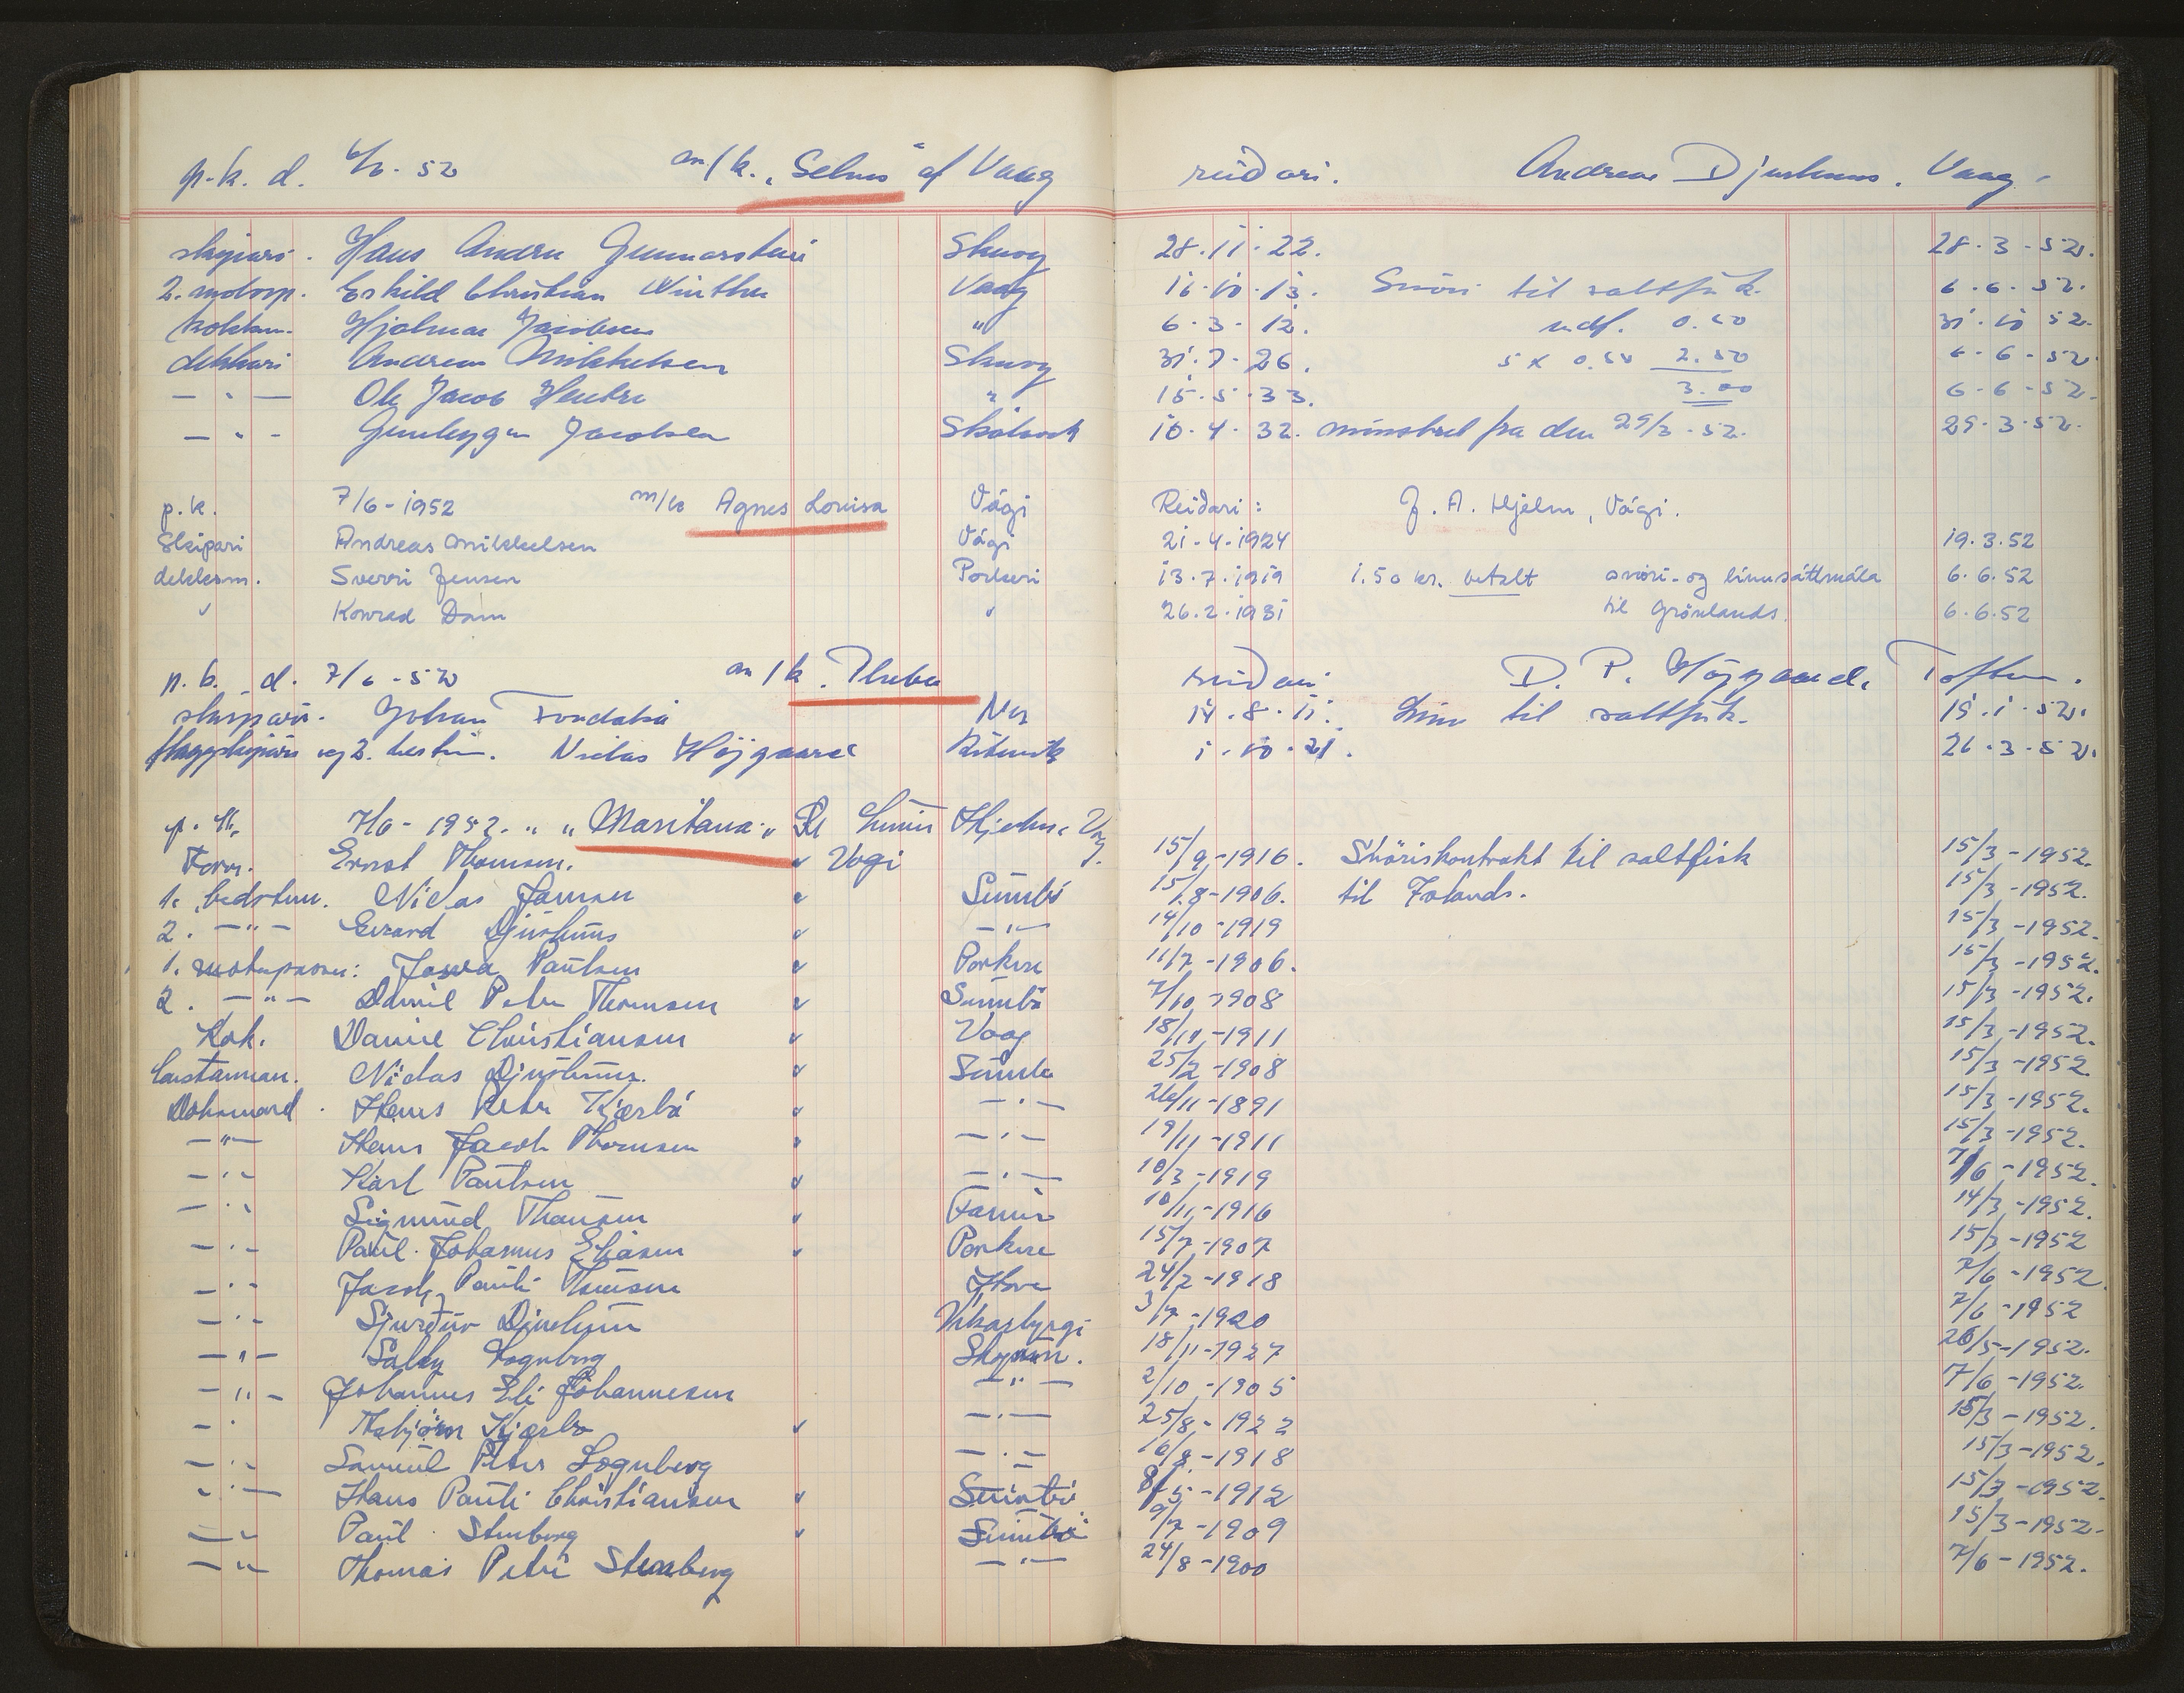 p.k. d. 6/6. 52 m/k. „Selma“ af Vaag reiðari. Andreas Djurhuus. Vaag.
skipari. Hans Andrew Gunnarstein Skuvoy 28.11.22. 28.3-52.
2. motorp. Eskild Christian Winther Vaag 16.10.13. Snöri til saltfisk. 6.6.52.
kokkur. Hjalmar Jacobsen " 6.3.12. udf. 0.50 31.10 52.
dekkari Andreas Mikkelsen Skuvoy 31.7.26. 5 x 0.50 2.50 6-6-52.
— " — Ole Jacob Hentze " 15.5.33. 3.00 6-6-52.
— " - Jacobsen 10.4.32. minstrel fra den 29/3-52. 29.3.52.
p.k. 7/6-1952 m/k Agnes Louisa Vági Reiðari: J. A. Hjelm, Vági.
Skipari Andreas Mikkelsen Vági 21-4-1924 19.3.52
dekksm. Sverri Jensen Porkeri 13.7.1919 1.50 kr. betalt snöri- og línusáttmála 6.6.52
" Konrad Dam " 26.2.1931 til Grönlands. 6.6.52
p.k. d. 7/6-52 m/k. Phebe reiðari D. P. Höjgaard, Toften.
skipari. Johan Nes 14.8.11. Linu til saltfisk. 15.1.52.
Flaggskipari og 2. bestim. Niclas Höjgaard Rituvík 1.10.21. 26.3-52.
p. k. 7/6-1952. " „Maritana“ Hjelm, Vag.
Form. Ernst Thomsen. v Vogi 15/9-1916. Snöriskontrakt til saltfisk 15/3-1952.
1. bedstm. Niclas Jensen v Sumbö 15/8-1906. til Islands. 15/3-1952.
2. —"— Evard Djurhuus v —"— 14/10-1919 15/3-1952.
1. motorpasser: Paulsen v Porkere 11/7-1906. 15/3-1952.
2. —"— Daniel Peter Thomsen v Sumbö 7/10-1908 15/3-1952.
Kok. Daniel Christiansen v Vaag 18/11-1911 15/3-1952.
Lastarman. Niclas Djurhuus. v Sumbö 25/2-1908 15/3-1952
Doksmand. Hans Peter Kjærbö v —"— 26/11-1891 15/3-1952.
—"— Hans Jacob Thomsen v —"— 19/11-1911 15/3-1952.
—"— Karl Poulsen v —"— 10/3-1919 7/6-1952.
—"— Sigmund Thomsen v Famien 10/11-1916 14/3-1952.
—"— Paul. Johannus Eliasen v Porkere 15/7-1907 15/3-1952
—"— Jacob Pauli Thomsen Hove 24/2-1918 7/6-1952.
—"— Sjurður Djurhuus Vikarbyrgi 3/7-1920 7/6-1952
—"— Sally Lognberg Skopun. 18/11-1927 26/5-1952.
—"— Johannes Eli Johannesen —"— 2/10-1905 7/6-1952.
—"— Asbjörn Kjærbo v —"— 25/8-1922 15/3-1952.
—"— Samuel Peter Lognberg —"— 16/8-1918 15/3-1952.
—"— Hans Pauli Christiansen v Sumbö 8/5-1912 15/3-1952.
—"— Paul. Stenberg v Sumbö 9/7-1909 15/3-1952.
—"— Thomas Peter Stenberg —"— 24/8-1900 7/6-1952.